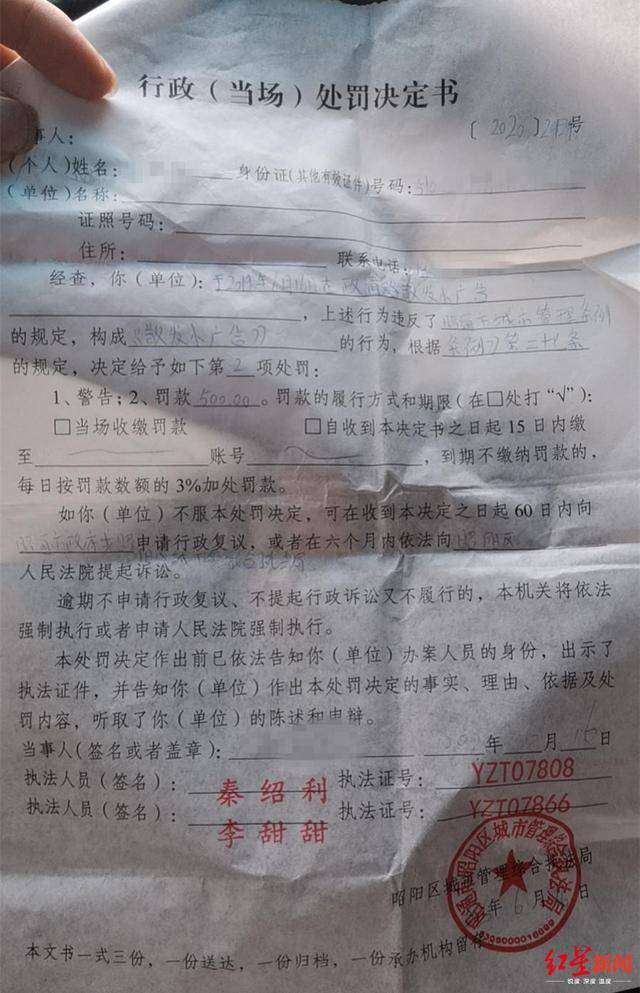 行政（当场）处罚决定书
〔2020〕 号
事人：
（个人）姓名： 身份证（其他有效证件）号码：510
（单位）名称：
证照号码：
住所： 联系电话：
经查，你（单位）：于2019年6月16日在 散发小广告
，上述行为违反了昭通市城市管理条例
的规定，构成《散发小广告》的行为，根据条例》第二十 条
的规定，决定给予如下第2项处罚：
1、警告；2、罚款500.00。罚款的履行方式和期限（在□处打“√”）：
□当场收缴罚款 □自收到本决定书之日起 15 日内缴
至 账号 ，到期不缴纳罚款的，
每日按罚款数额的 3%加处罚款。
如你（单位）不服本处罚决定，可在收到本决定之日起 60 日内向
申请行政复议，或者在六个月内依法向昭阳区
人民法院提起诉讼。
逾期不申请行政复议、不提起行政诉讼又不履行的，本机关将依法
强制执行或者申请人民法院强制执行。
本处罚决定作出前已依法告知你（单位）办案人员的身份，出示了
执法证件，并告知你（单位）作出本处罚决定的事实、理由、依据及处
罚内容，听取了你（单位）的陈述和申辩。
当事人（签名或者盖章）： 年 月 日
执法人员（签名）：秦绍利 执法证号：YZT07808
执法人员（签名）：李甜甜 执法证号：YZT07866
昭阳区城市管理综合执法局
年6月 日
本文书一式三份，一份送达，一份归档，一份承办机构留存
红星新闻
锐度 深度 温度